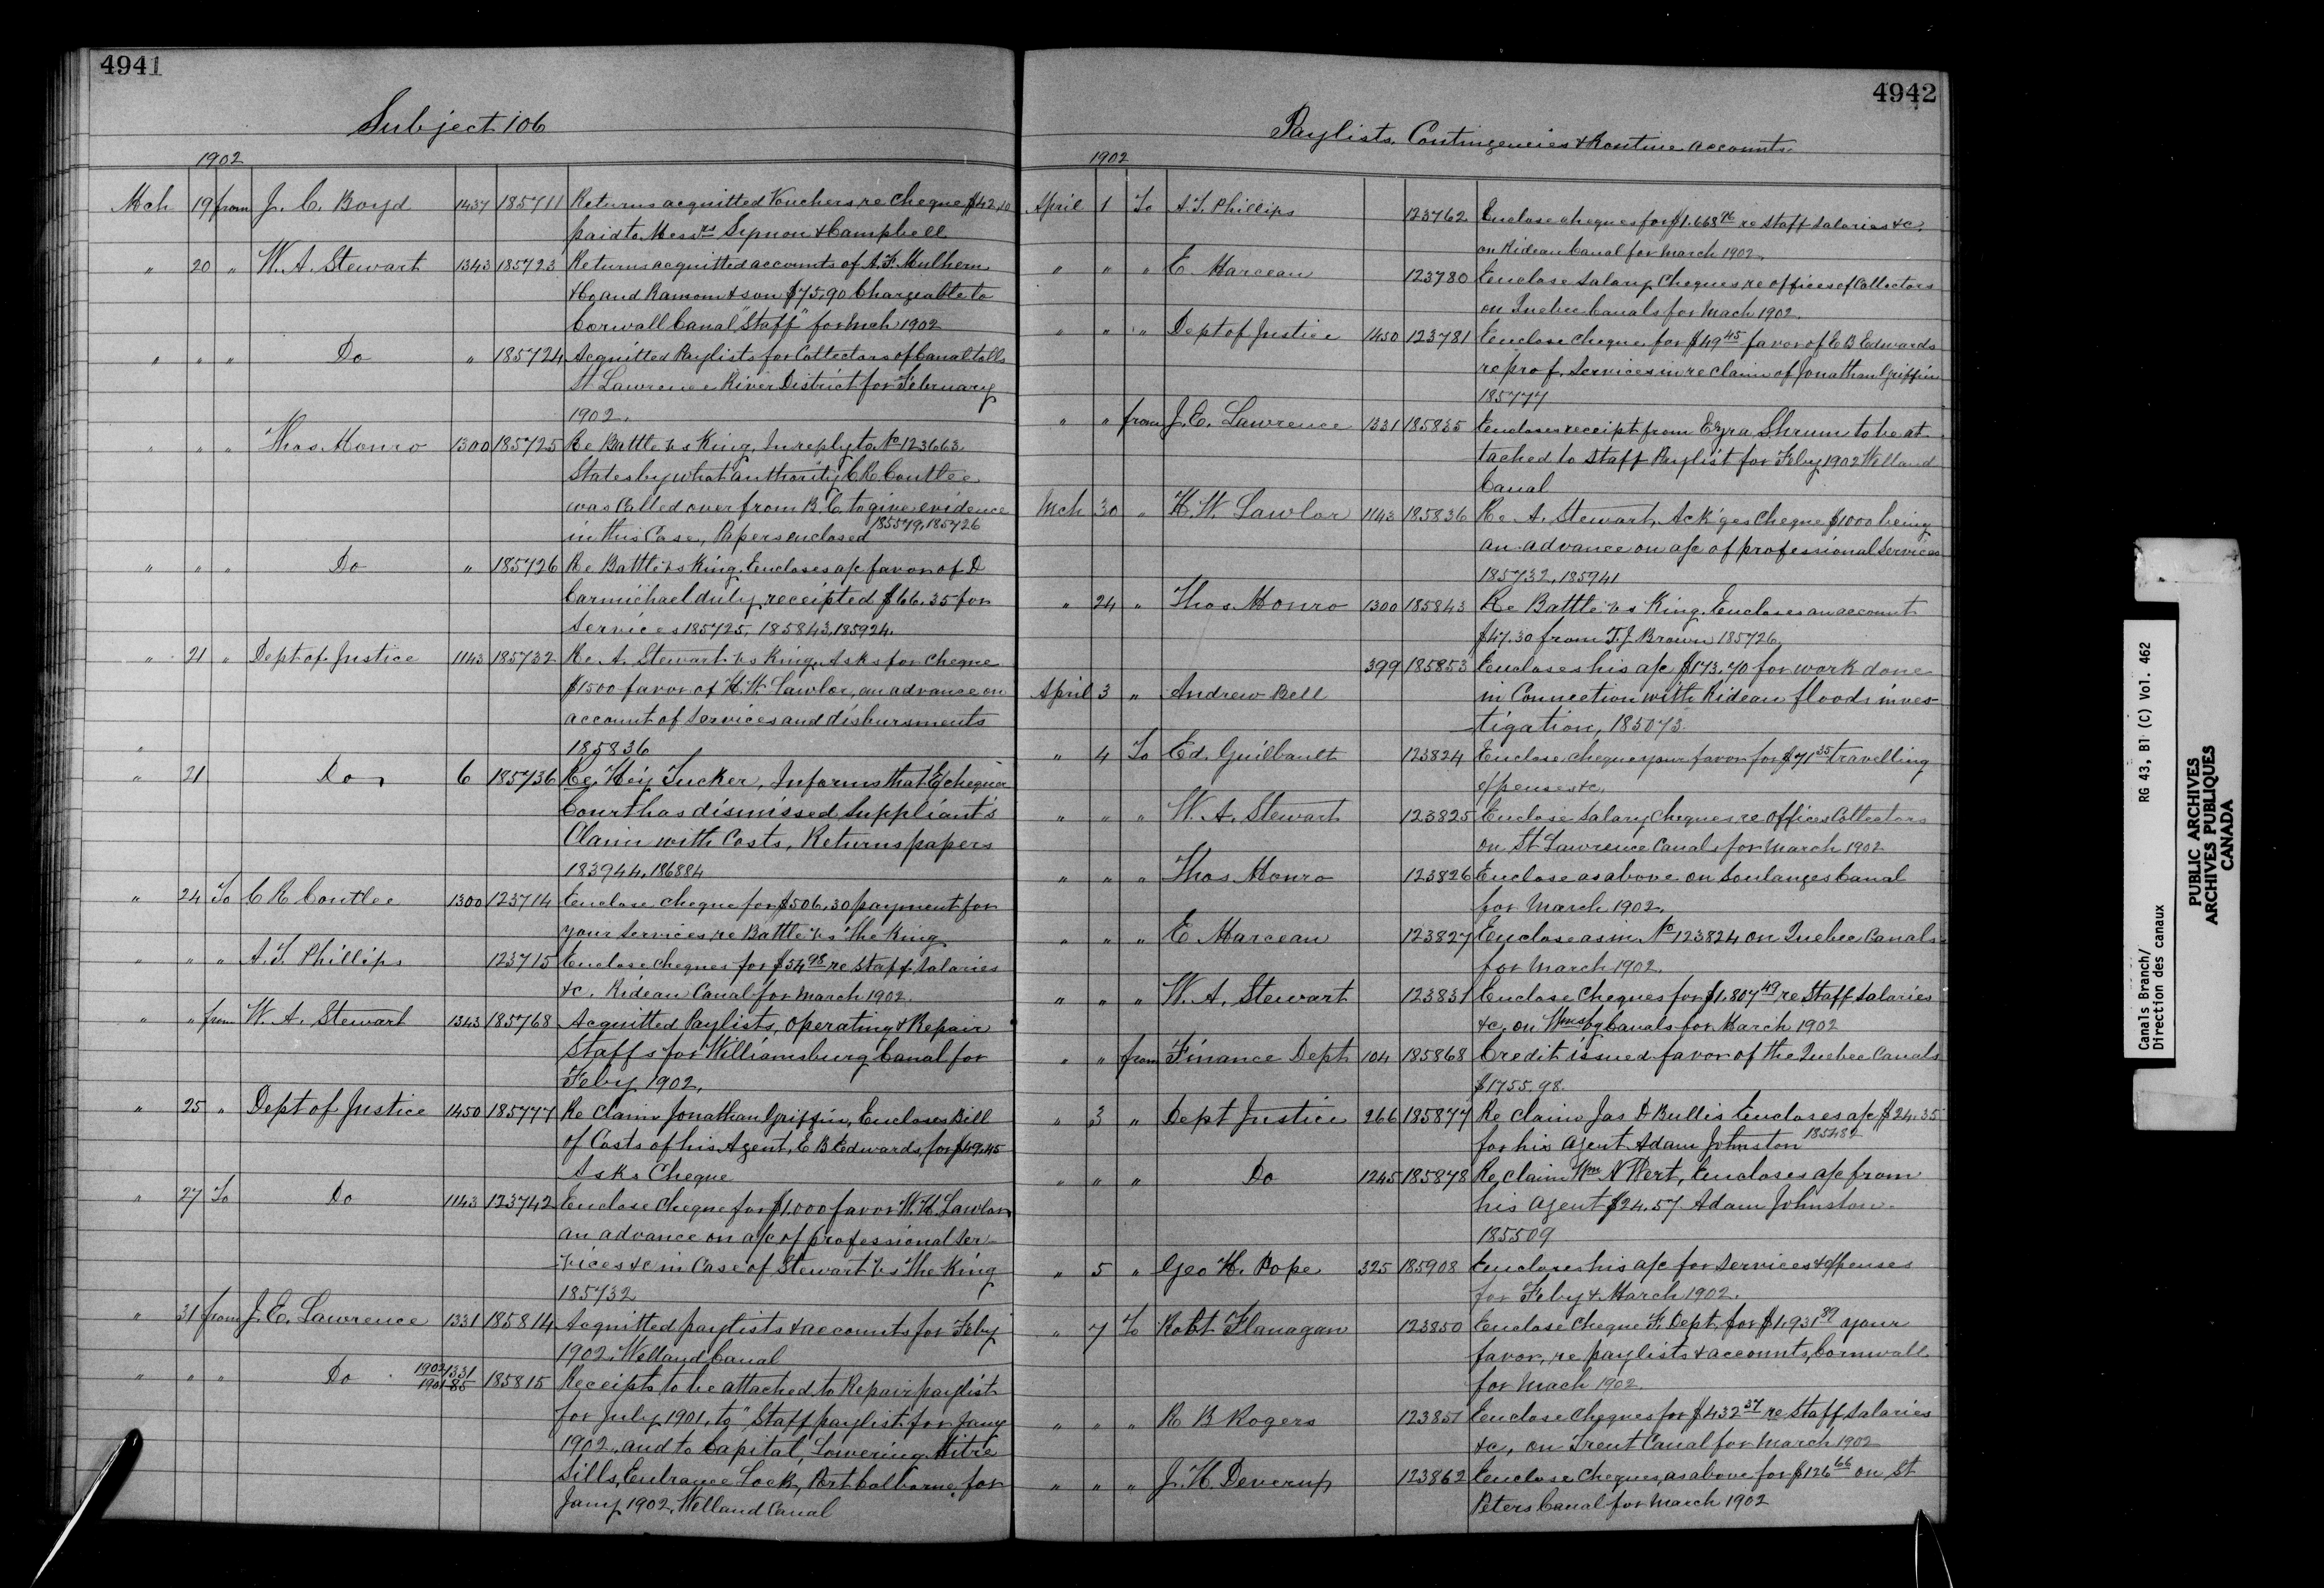 4941
Subject 106
1902
Mch 19 from J. C. Boyd 1437 185711 Returns acquitted Vouchers re Cheque $42.10
paid to Messrs Symon & Campbell
" 20 " W. A. Stewart 1343 185723 Returns acquitted accounts of A. F. Mulhern
& Co and Ramom & son $75.90 Chargeable to
Corwall Canal "Staff" for Mch 1902
" " " Do " 185724 Acquitted Paylists for Collectors of Canal tolls
St Lawrence River District for February
1902.
" " " Thos. Monro 1300 185725 Re Battle vs King, In reply to No 123663
States by what authority C R Coutlee
was Called over from B. C. to give evidence
in this Case, Papers enclosed 185579, 185726
" " " Do " 185726 Re Battle vs King. Encloses a/c favor of D
Carmichael duly receipted $66.35 for
Services 185725, 185843, 185924.
" 21 " Dept of Justice 1143 185732 Re A. Stewart vs King, Asks for cheque
$1500 favor of H. W. Lawlor, an advance on
account of services and disbursments
" 185836
" 21 Do 6 185736 Re. Hey Tucker, Informs that Exchequer
Court has dismissed Suppliant's
Claim with Costs, Returns papers
183944, 186884
" 24 To C R Coutlee 1300 123714 Enclose cheque for $506.30 payment for
your services re Battle vs The King
" " " A. T. Phillips 123715 Enclose cheques for $54 98 re Staff Salaries
&c. Rideau Canal for March 1902.
" " from W. A. Stewart 1343 185768 Acquitted Paylists, Operating & Repair
Staffs for Williamsburg Canal for
Feby 1902.
" 25 " Dept of Justice 1450 185777 Re Claim Jonathan Griffin, Encloses Bill
of Costs of his Agent, E B Edwards, for $49.45
Asks Cheque
" 27 To Do 1143 123742 Enclose Cheque for $1.000 favor W. H. Lawlor
an advance on a/c of professional Ser-
vices &c in Case of Stewart vs The King
185732
" 31 from J. E. Lawrence 1331 185814 Acquitted paylists & accounts for Feby
1902. Welland Canal
" " " Do 1902/1901 1331/85 185815 Receipts to be attached to Repair paylist
for July 1901, to "Staff paylist for Jany
1902, and to Capital, Lowering Mitre
Sills, Entrance Lock, Port Colborne, for
Jany 1902, Welland Canal
4942
Paylists, Contingencies & Routine accounts
1902
April 1 To A. T. Phillips 123762 Enclose cheques for $1.668 96 re Staff Salaries &c.
on Rideau Canal for March 1902.
" " " E. Marceau 123780 Enclose Salary Cheques re offices of Collectors
on Quebec Canals for Mach 1902.
" " " Dept of Justice 1450 123781 Enclose cheque for $49 45 favor of E B Edwards
re prof. Services in re claim of Jonathan Griffin
185777
" " from J. E. Lawrence 1331 185835 Encloses receipt from Ezra Shrum to be at-
tached to Staff Paylist for Feby 1902 Welland
Canal
Mch 30 " H. W. Lawlor 1143 185836 Re A. Stewart, Ack'ges Cheque $1000 being
an advance on a/c of professional services
185732, 185941
" 24 " Thos. Monro 1300 185843 Re Battle vs King. Encloses an account
$47.30 from T. J. Brown 185726.
399 185853 Encloses his a/c $173.70 for work done
April 3 " Andrew Bell in Connection with Rideau floods inves-
tigation, 185073.
" 4 To Ed. Guilbault 123824 Enclose cheque your favor for $71 35 travelling
expenses &c.
" " " W. A. Stewart 123825 Enclose Salary Cheques re Offices Collectors
on St Lawrence Canals for March 1902
" " " Thos. Monro 123826 Enclose as above on Soulanges Canal
for March 1902.
" " " E Marceau 123827 Enclose as in No 123824 on Quebec Canals
for March 1902.
" " " W. A. Stewart 123831 Enclose Cheques for $1.807 49 re Staff Salaries
&c. on Wmsbg Canals for March 1902
" " from Finance Dept 104 185868 Credit issued favor of the Quebec Canals
$1755.98.
" 3 " Dept Justice 266 185877 Re Claim Jas D Bullis Encloses a/c $24.35
for his Agent Adam Johnston 185482
" " " Do 1245 185878 Re Claim Wm N Wert, Encloses a/c from
his Agent $24.57 Adam Johnston.
185509
" 5 " Geo H. Pope 325 185908 Encloses his a/c for services & expenses
for Feby & March 1902.
" 7 To Robt Flanagan 123850 Enclose Cheque F. Dept. for $1.931 89 your
favor, re paylists & accounts, Cornwall
for Mach 1902.
" " " R B Rogers 123851 Enclose Cheques for $432 57 re Staff Salaries
&c, on Trent Canal for March 1902
" " " J. H. Deverup 123862 Enclose Cheques, as above for $126 66 on St
Peters Canal for March 1902
Canals Branch/
Direction des canaux
RG 43, B1 (C) Vol. 462
PUBLIC ARCHIVES
ARCHIVES PUBLIQUES
CANADA